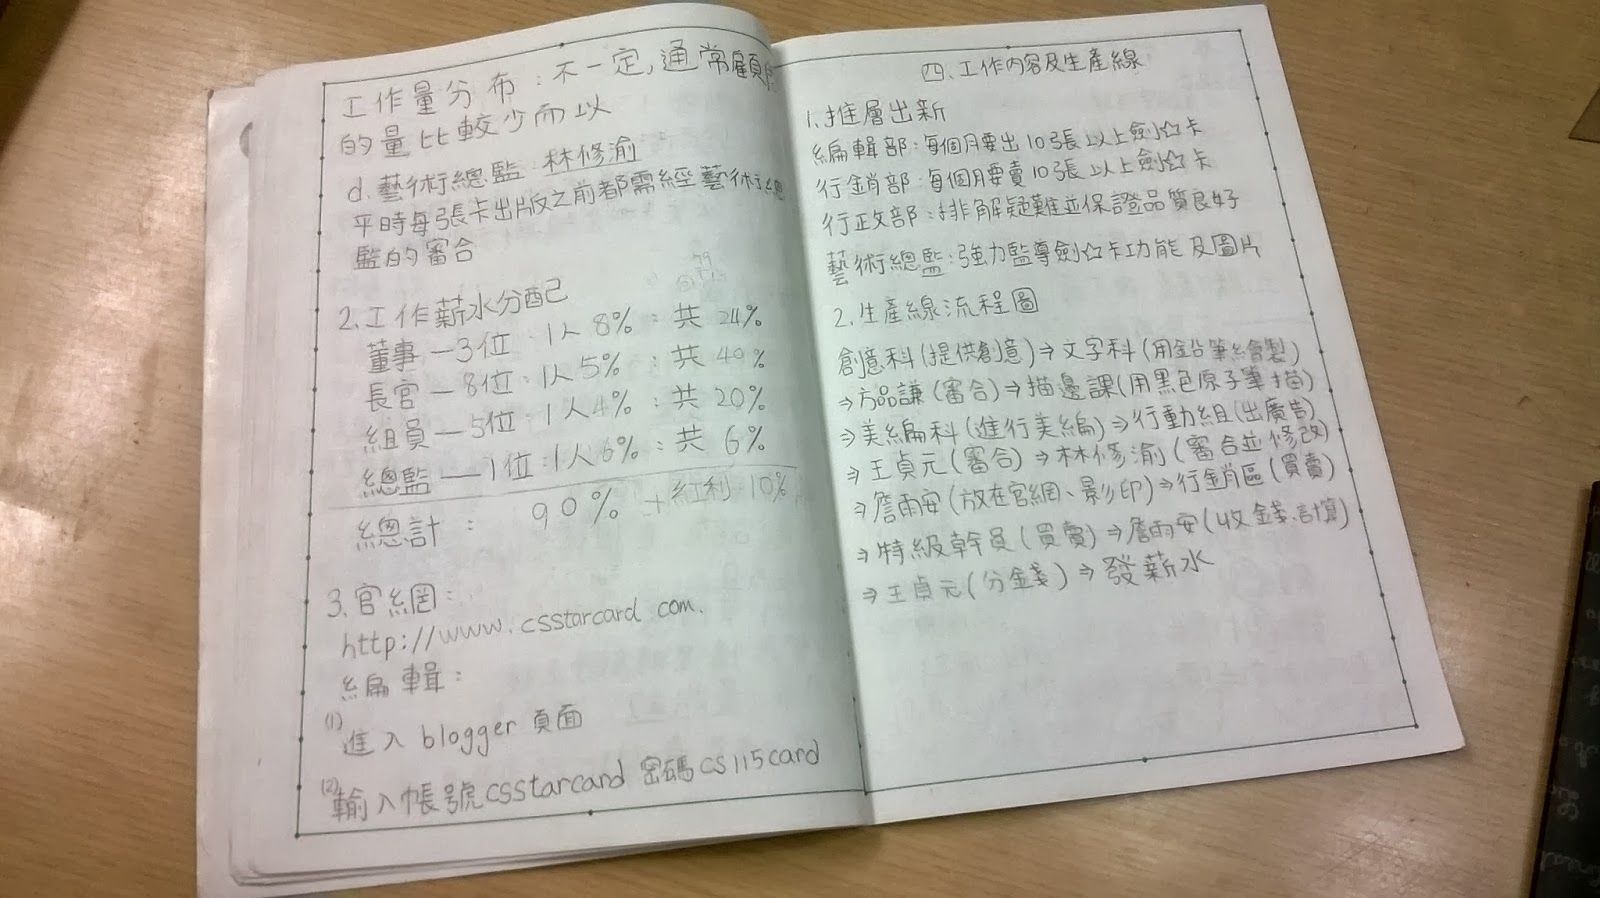 工作量分布：不一定，通常顧
的量比較少而以
d.藝術總監：林修渝
平時每張卡出版之前都需經藝術總
監的審合
2.工作薪水分配
董事－3位：1人8%：共24%
長官－8位：1人5%：共40%
組員－5位：1人4%：共20%
總監－1位：1人6%：共6%
總計：90%＋紅利10%
3.官網：
http://www.csstarcard.com.
編輯：
(1)進入 blogger 頁面
(2)輸入帳號csstarcard 密碼cs115card
四、工作內容及生產線
1.推層出新
編輯部：每個月要出10張以上劍☆卡
行銷部：每個月要賣10張以上劍☆卡
行政部：排解疑難並保證品質良好
藝術總監：強力監導劍☆卡功能及圖片
2.生產線流程圖
創意科(提供創意)⇒文字科(用鉛筆繪製)
⇒方品謙(審合)⇒描邊課(用黑色原子筆描)
⇒美編科(進行美編)⇒行動組(出廣告)
⇒王貞元(審合)⇒林修渝(審合並修改)
⇒詹雨安(放在官網、影印)⇒行銷區(買賣)
⇒特級幹員(買賣)⇒詹雨安(收金錢.計算)
⇒王貞元(分金錢)⇒發薪水